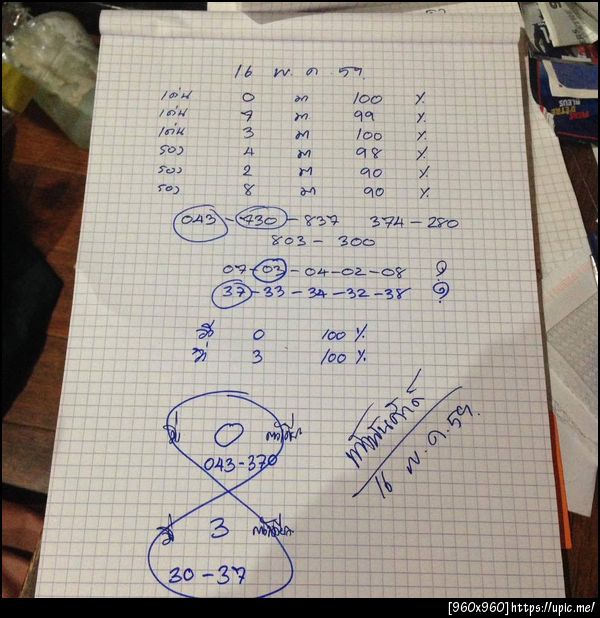 16 พ.ค. 59.
เด่น 0 มา 100 %
เด่น 7 มา 99 %
เด่น 3 มา 100 %
รอง 4 มา 98 %
รอง 2 มา 90 %
รอง 8 มา 90 %
043 - 730 - 837 374 - 280
803 - 300
07 - 03 - 04 - 02 - 08 ?
37 - 33 - 34 - 32 - 38 ?
0 100 %
3 100 %
0
043 - 370
3
30 - 37
16 พ.ค. 59.
[960x960] https://upic.me/